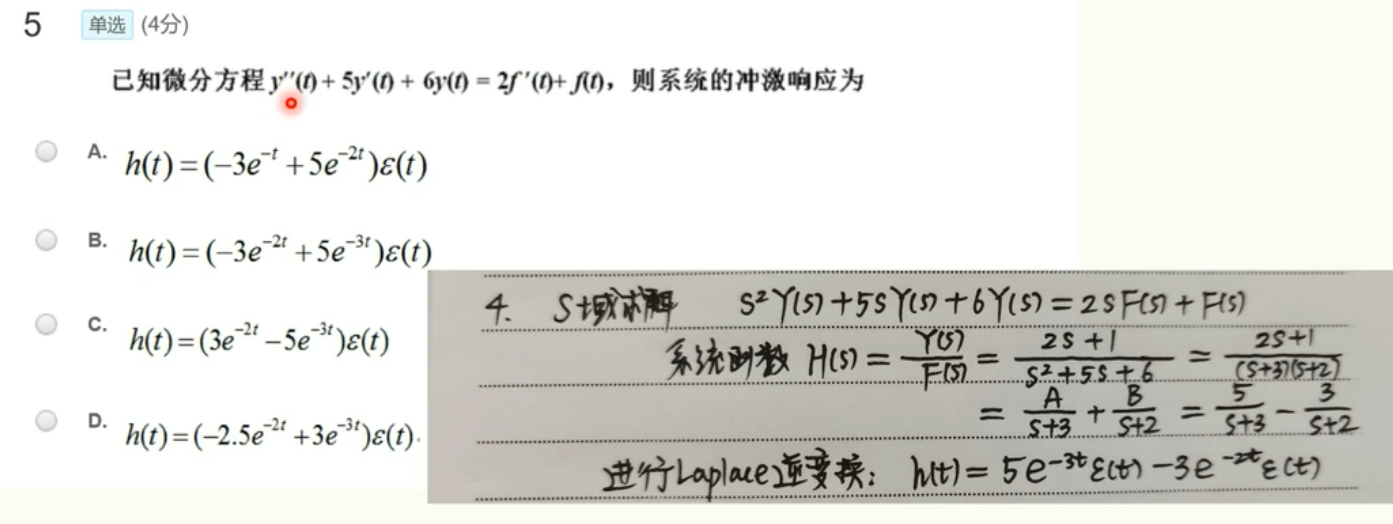 5 单选 (4分)
已知微分方程y''(t) + 5y'(t) + 6y(t) = 2f'(t)+ f(t)，则系统的冲激响应为
A. h(t)=(-3e^{-t}+5e^{-2t})ε(t)
B. h(t)=(-3e^{-2t}+5e^{-3t})ε(t)
C. h(t)=(3e^{-2t}-5e^{-3t})ε(t)
D. h(t)=(-2.5e^{-2t}+3e^{-3t})ε(t).
4. S域求解 S²Y(S)+5SY(S)+6Y(S)=2SF(S)+F(S)
系统函数 H(S)=\frac{Y(S)}{F(S)}=\frac{2S+1}{S²+5S+6}=\frac{2S+1}{(S+3)(S+2)}
=\frac{A}{S+3}+\frac{B}{S+2}=\frac{5}{S+3}-\frac{3}{S+2}
进行Laplace逆变换: h(t)=5e^{-3t}ε(t)-3e^{-2t}ε(t)